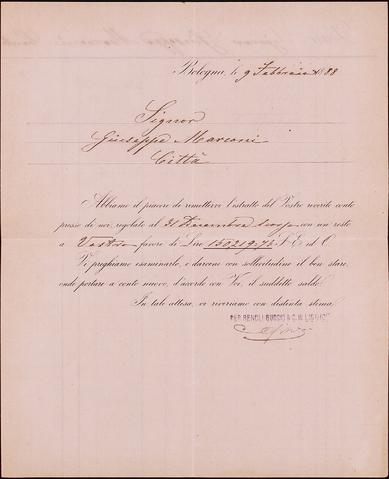 Bologna, li 9 Febbraio 1888
Signor
Giuseppe Marconi
Città
Abbiamo il piacere di rimettervi l'estratto del Vostro riverito conto
presso di noi, regolato al 31 Dicembre scorso con un resto
a Vostro favore di Lire 150219.72 S. E. ed O.
Vi preghiamo esaminarlo, e darcene con sollecitudine il ben stare,
onde portare a conto nuovo, d'accordo con Voi, il suddetto saldo.
In tale attesa, vi riveriamo con distinta stima
PER RENOLI BUGGIO & C.